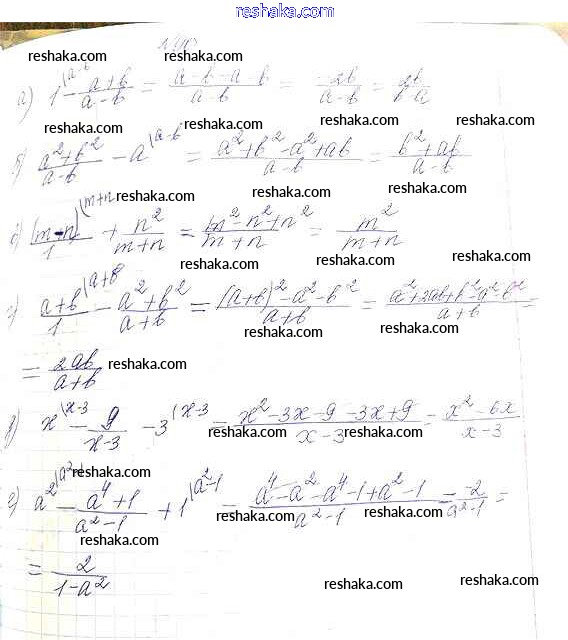 reshaka.com
reshaka.com reshaka.com
а) 1^{(a-b} - \frac{a+b}{a-b} = \frac{a-b-a-b}{a-b} = \frac{-2b}{a-b} = \frac{2b}{b-a}
reshaka.com reshaka.com
reshaka.com reshaka.com
б) \frac{a^2+b^2}{a-b} - a^{(a-b} = \frac{a^2+b^2-a^2+ab}{a-b} = \frac{b^2+ab}{a-b}
reshaka.com reshaka.com
\frac{(m-n)}{1}^{(m+n} + \frac{n^2}{m+n} = \frac{m^2-n^2+n^2}{m+n} = \frac{m^2}{m+n}
reshaka.com reshaka.com
г) \frac{a+b}{1}^{(a+b} - \frac{a^2+b^2}{a+b} = \frac{(a+b)^2-a^2-b^2}{a+b} = \frac{a^2+2ab+b^2-a^2-b^2}{a+b} =
reshaka.com reshaka.com
= \frac{2ab}{a+b} reshaka.com
reshaka.com
x^{(x-3} - \frac{9}{x-3} - 3^{(x-3} = \frac{x^2-3x-9-3x+9}{x-3} = \frac{x^2-6x}{x-3}
reshaka.com reshaka.com
reshaka.com reshaka.com
a^2 - \frac{a^4+1}{a^2-1} + 1^{(a^2-1} = \frac{a^4-a^2-a^4-1+a^2-1}{a^2-1} = \frac{-2}{a^2-1} =
reshaka.com reshaka.com
reshaka.com
= \frac{2}{1-a^2}
reshaka.com reshaka.com